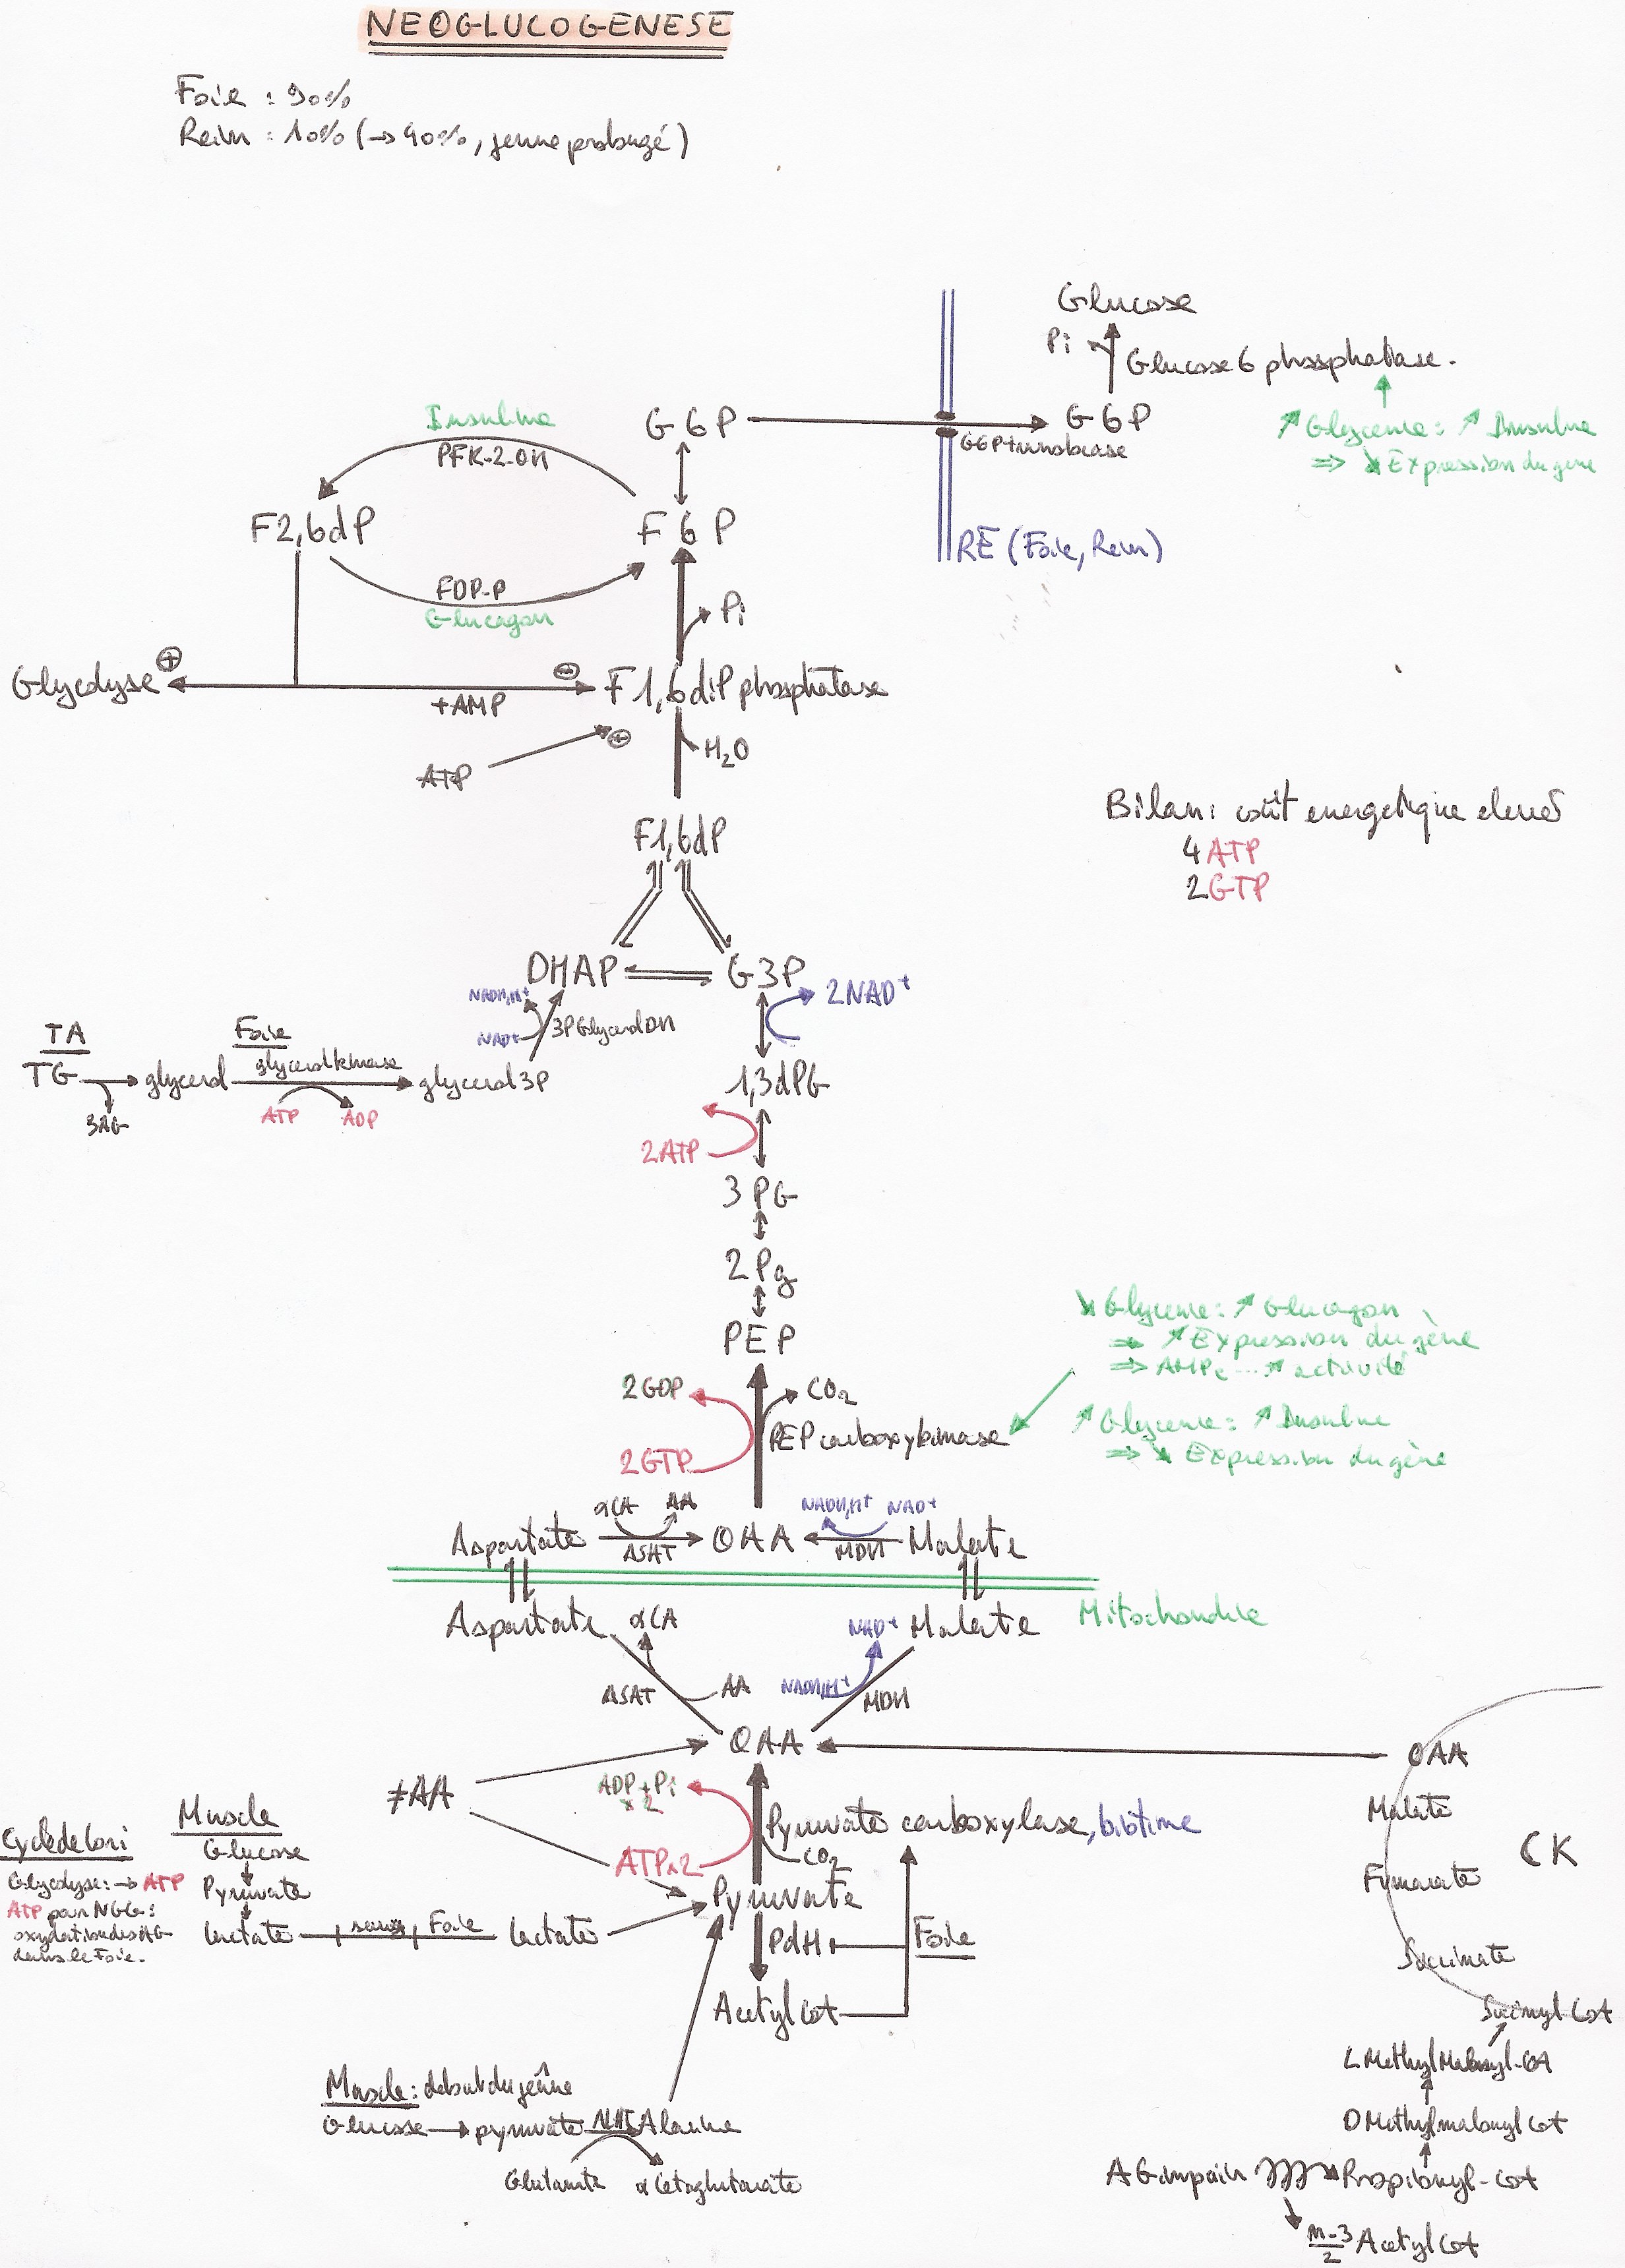 NEOGLUCOGENESE
Foie : 90%
Rein : 10% (→ 40%, jeune prolongé)
Glucose
Pi
Glucose 6 phosphatase.
G 6 P
G 6 P
G6P translocase
↗ Glycemie : ↗ Insuline
⇒ ↘ Expression du gene
Insuline
PFK-2-OH
F2,6dP
F 6 P
RE (Foie, Rein)
FDP-P
Glucagon
Pi
Glycolyse
+
-
F1,6diP phosphatase
+AMP
+
H2O
ATP
F1,6dP
Bilan : coût energetique elevé
4 ATP
2 GTP
DHAP
G3P
NADH,H+
2NAD+
NAD+
3P Glycerol DH
TA
Foie
TG
glycerol
glycerol kinase
glycerol 3P
1,3dPG
3AG
ATP
ADP
2ATP
3 PG
2 Pg
PEP
↘ Glycemie : ↗ Glucagon
⇒ ↗ Expression du gène
⇒ AMPc ... ↗ activité
2GDP
CO2
PEP carboxykinase
↗ Glycemie : ↗ Insuline
⇒ ↘ Expression du gène
2GTP
αCA
AA
NADH,H+
NAD+
Aspartate
ASAT
OAA
MDH
Malate
Mitochondrie
Aspartate
αCA
NAD+
Malate
ASAT
AA
NADH,H+
MDH
OAA
OAA
≠AA
ADP+Pi
x 2
Malate
Muscle
Pyruvate carboxylase, biotine
Cycle de Cori
Glucose
CK
ATPx2
CO2
Glycolyse : → ATP
Pyruvate
Pyruvate
Fumarate
ATP pour NGG :
oxydation des AG
dans le Foie.
Lactate
sang
Foie
Lactate
PdH
Foie
Succinate
Acetyl CoA
Succinyl CoA
L Methyl Malonyl-CoA
Muscle : debut du jeûne
Glucose → pyruvate
ALAT
Alanine
D Methylmalonyl CoA
Glutamate
α Cetoglutarate
AG impair
Propionyl-CoA
n-3
2
Acetyl CoA